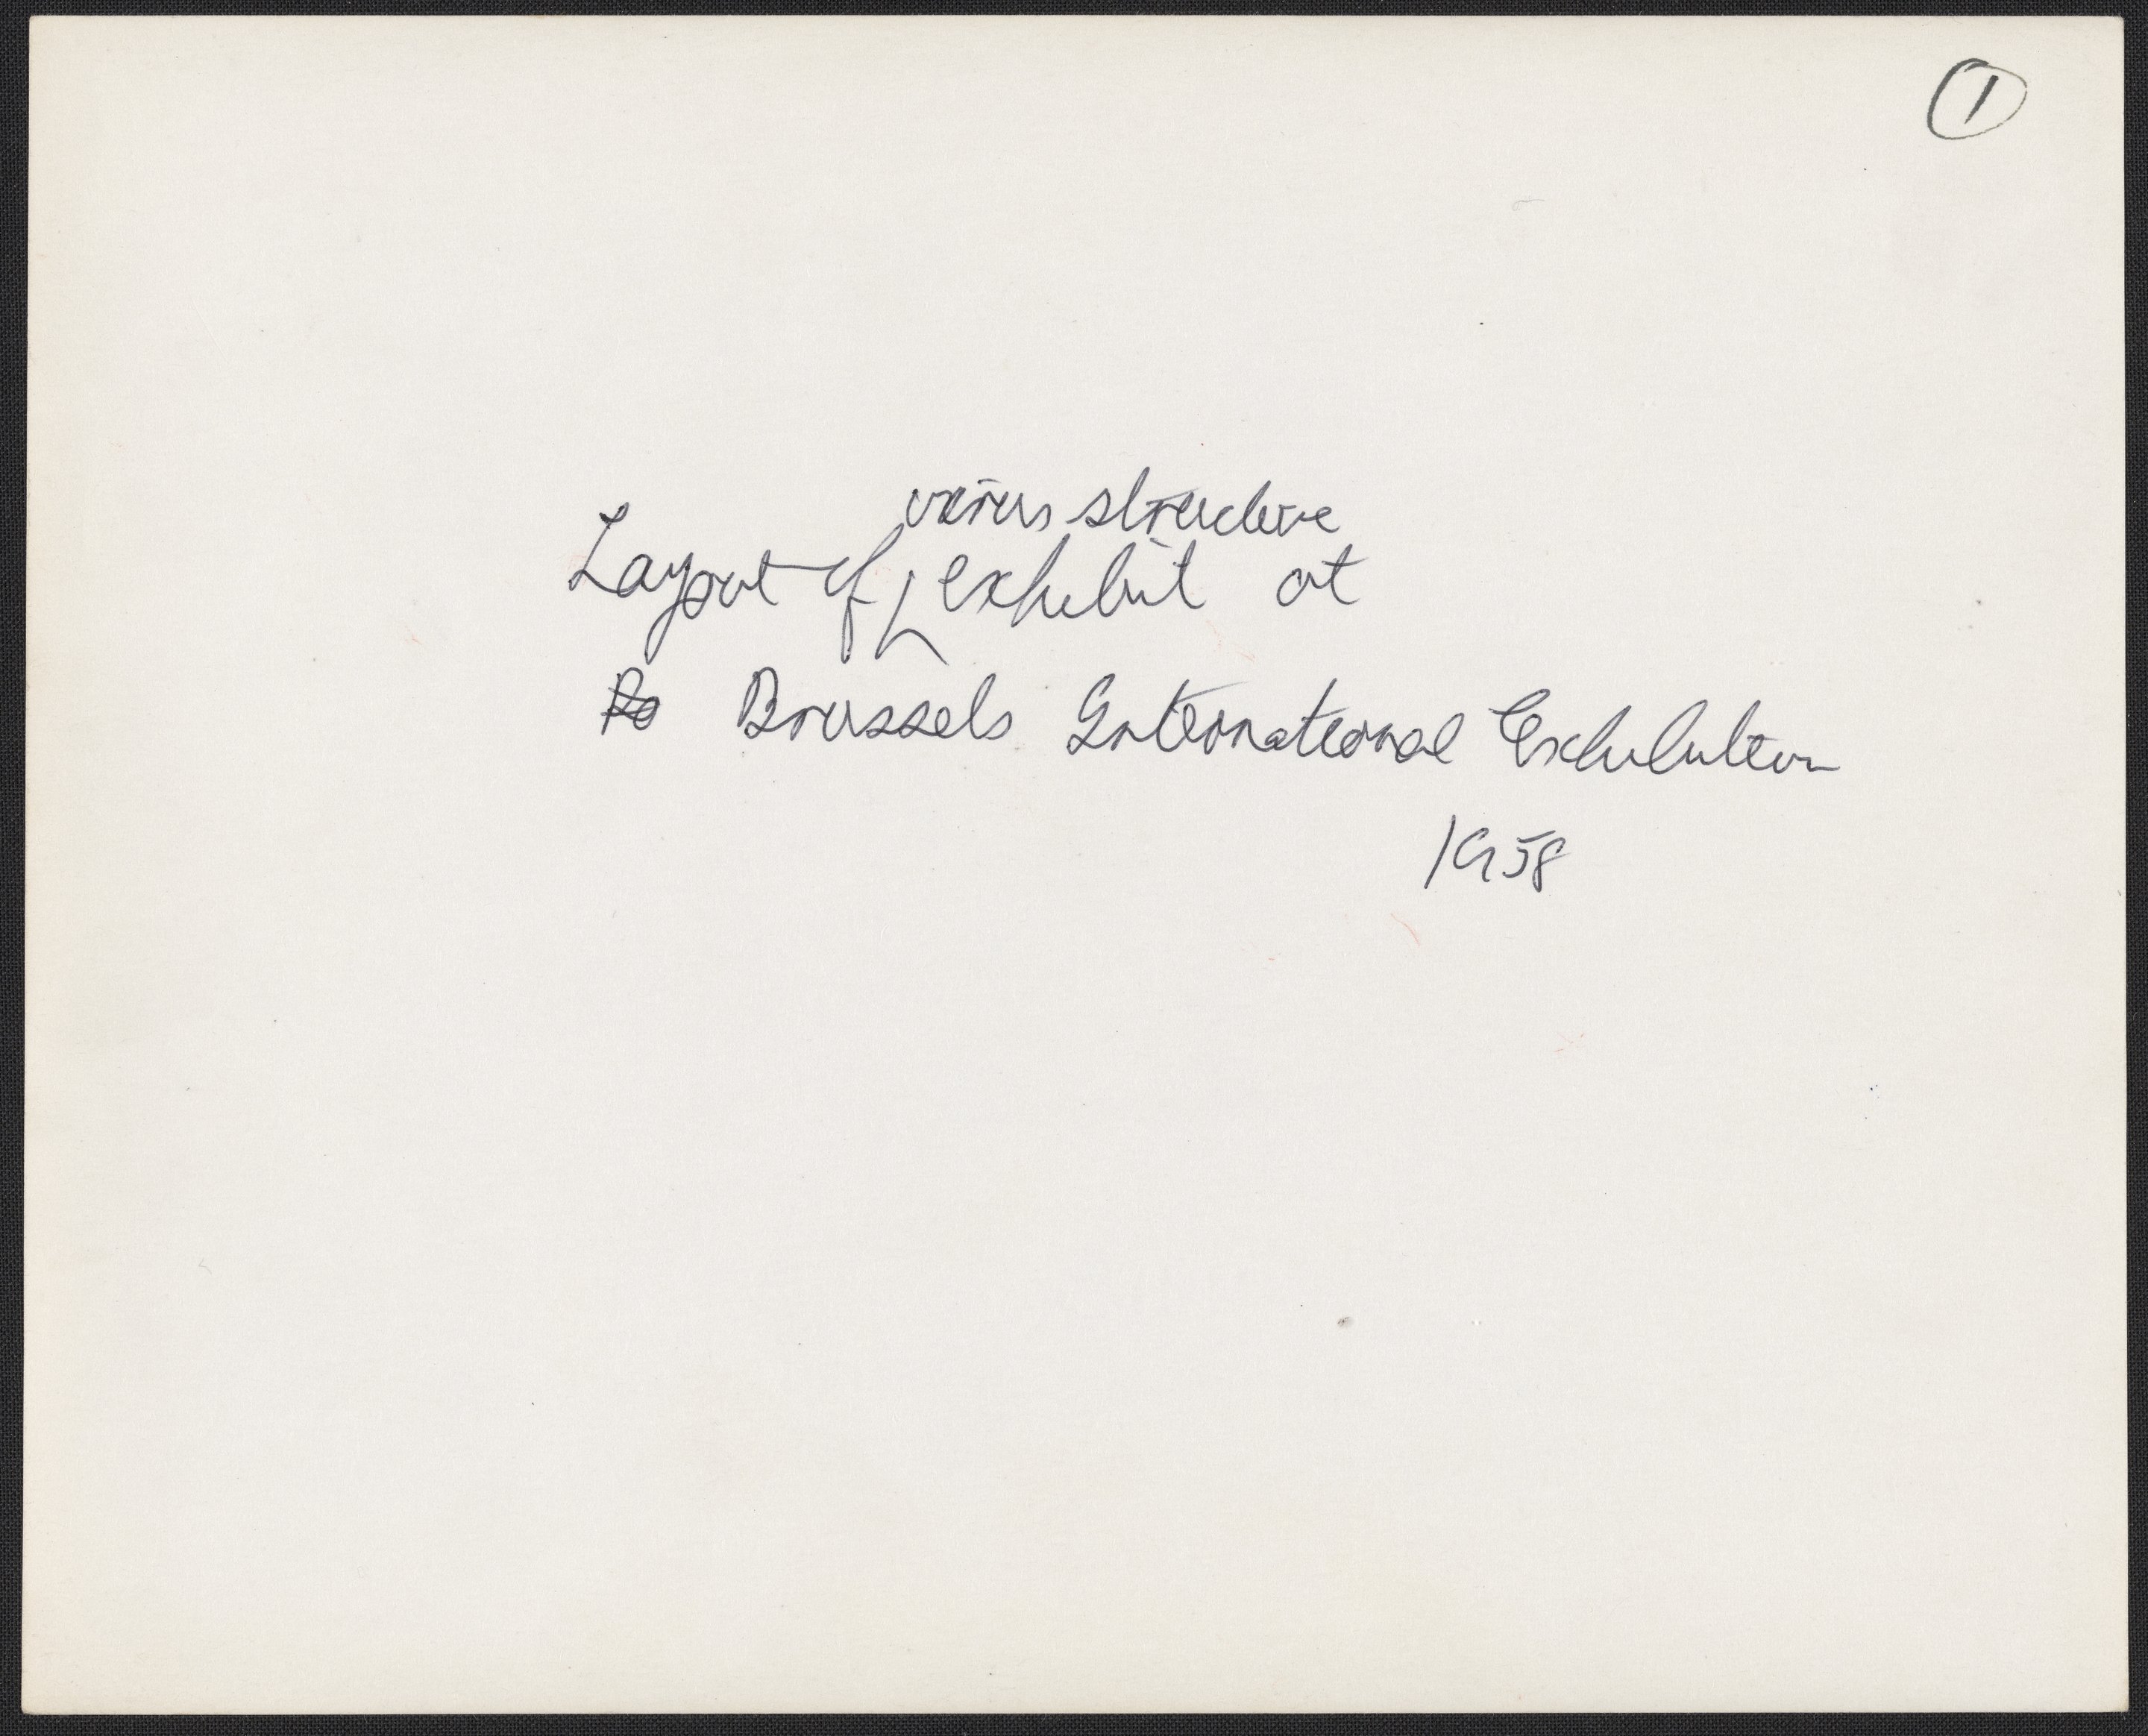 1
virus structure
Layout of exhibit at
Brussels International Exhibition
1958